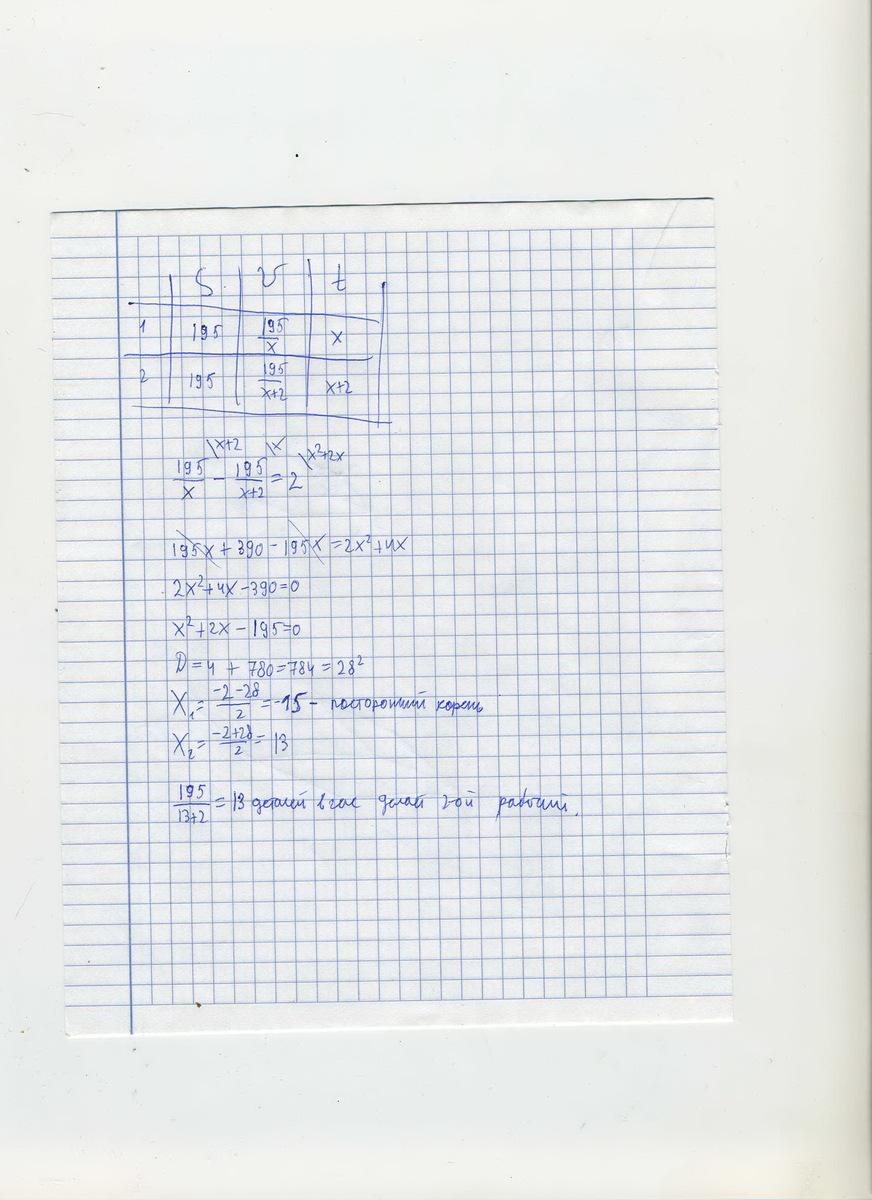 S v t
1 195 195/x x
2 195 195/(x+2) x+2
195/x \x+2 - 195/(x+2) \x = 2 \x²+2x
195x + 390 - 195x = 2x² + 4x
2x² + 4x - 390 = 0
x² + 2x - 195 = 0
D = 4 + 780 = 784 = 28²
X₁ = (-2-28)/2 = -15 - посторонний корень
X₂ = (-2+28)/2 = 13
195/(13+2) = 13 деталей в час делай 2-ой рабочий.